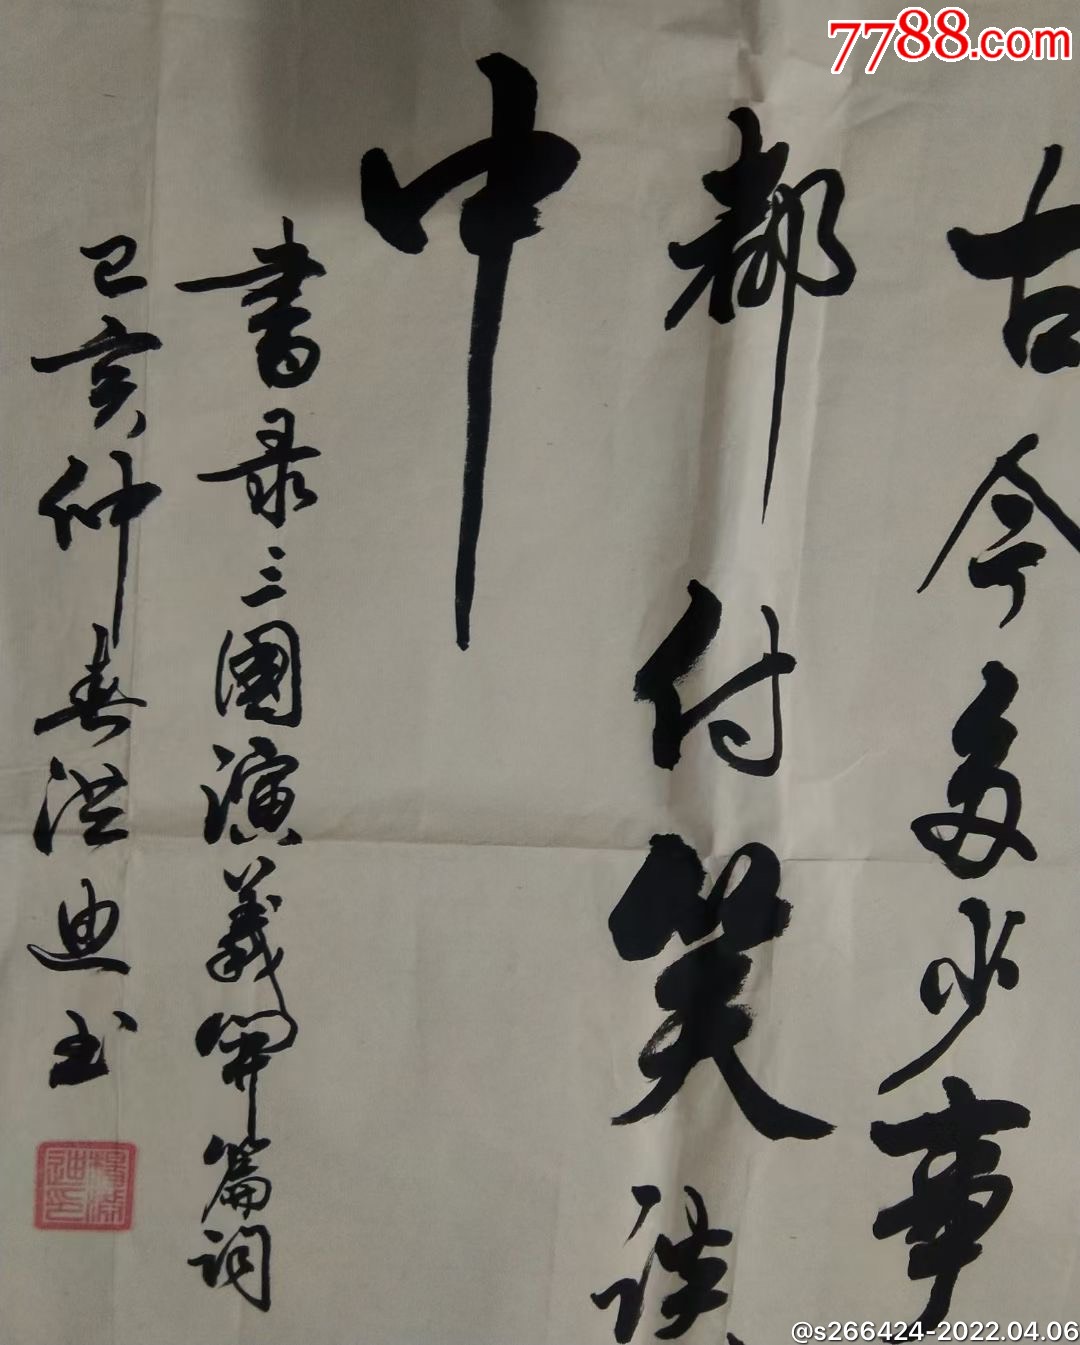 7788.com
古今多少事
都付笑谈
中
書录三國演義開篇词
己亥仲春洪迪书
@s266424-2022.04.06